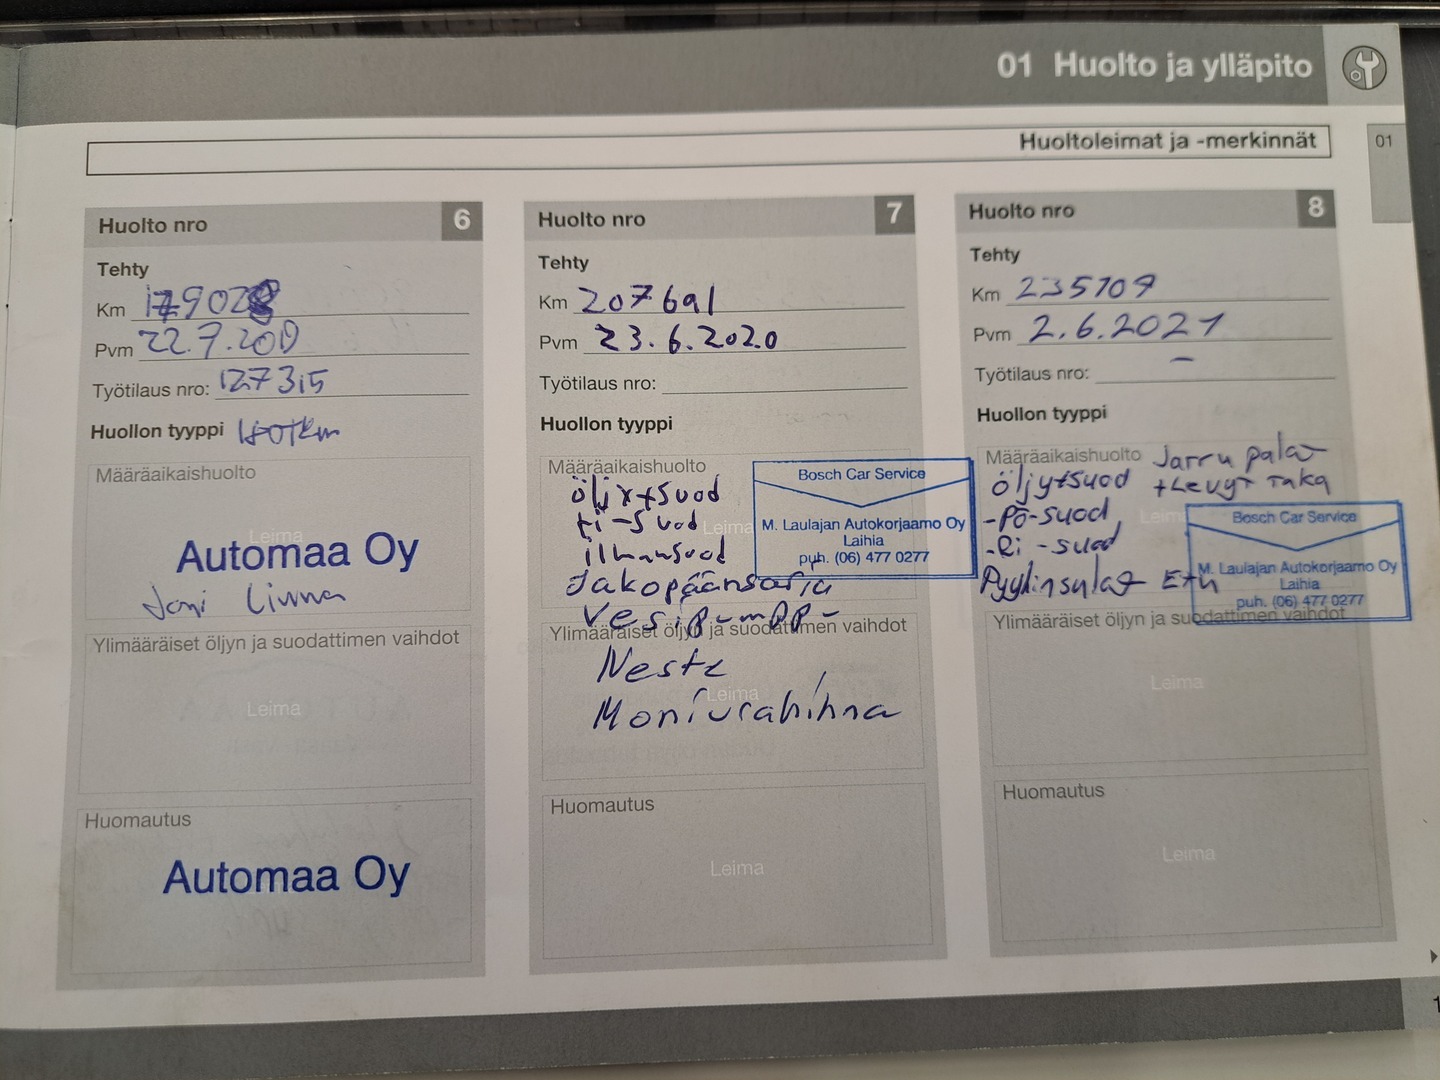 01 Huolto ja ylläpito
Huoltoleimat ja -merkinnät
01
Huolto nro 6
Tehty
Km 179028
Pvm 22.7.
Työtilaus nro: 127315
Huollon tyyppi
Määräaikaishuolto
Leima
Automaa Oy
Joni Linna
Ylimääräiset öljyn ja suodattimen vaihdot
Leima
Huomautus
Automaa Oy
Huolto nro 7
Tehty
Km 207691
Pvm 23.6.2020
Työtilaus nro:
Huollon tyyppi
Määräaikaishuolto
öljy+suod
ri-suod
Leima
ilmansuod
Jakopäänsarja
Vesipumppu
Bosch Car Service
M. Laulajan Autokorjaamo Oy
Laihia
puh. (06) 477 0277
Ylimääräiset öljyn ja suodattimen vaihdot
Neste
Leima
Moniurahihna
Huomautus
Leima
Huolto nro 8
Tehty
Km 235109
Pvm 2.6.2021
Työtilaus nro: -
Huollon tyyppi
Määräaikaishuolto
Jarru palat
+Levyt Taka
öljy+suod
-Pö-suod
Leima
-Ri-suod
Pyyhinsulat Etu
Bosch Car Service
M. Laulajan Autokorjaamo Oy
Laihia
puh. (06) 477 0277
Ylimääräiset öljyn ja suodattimen vaihdot
Leima
Huomautus
Leima